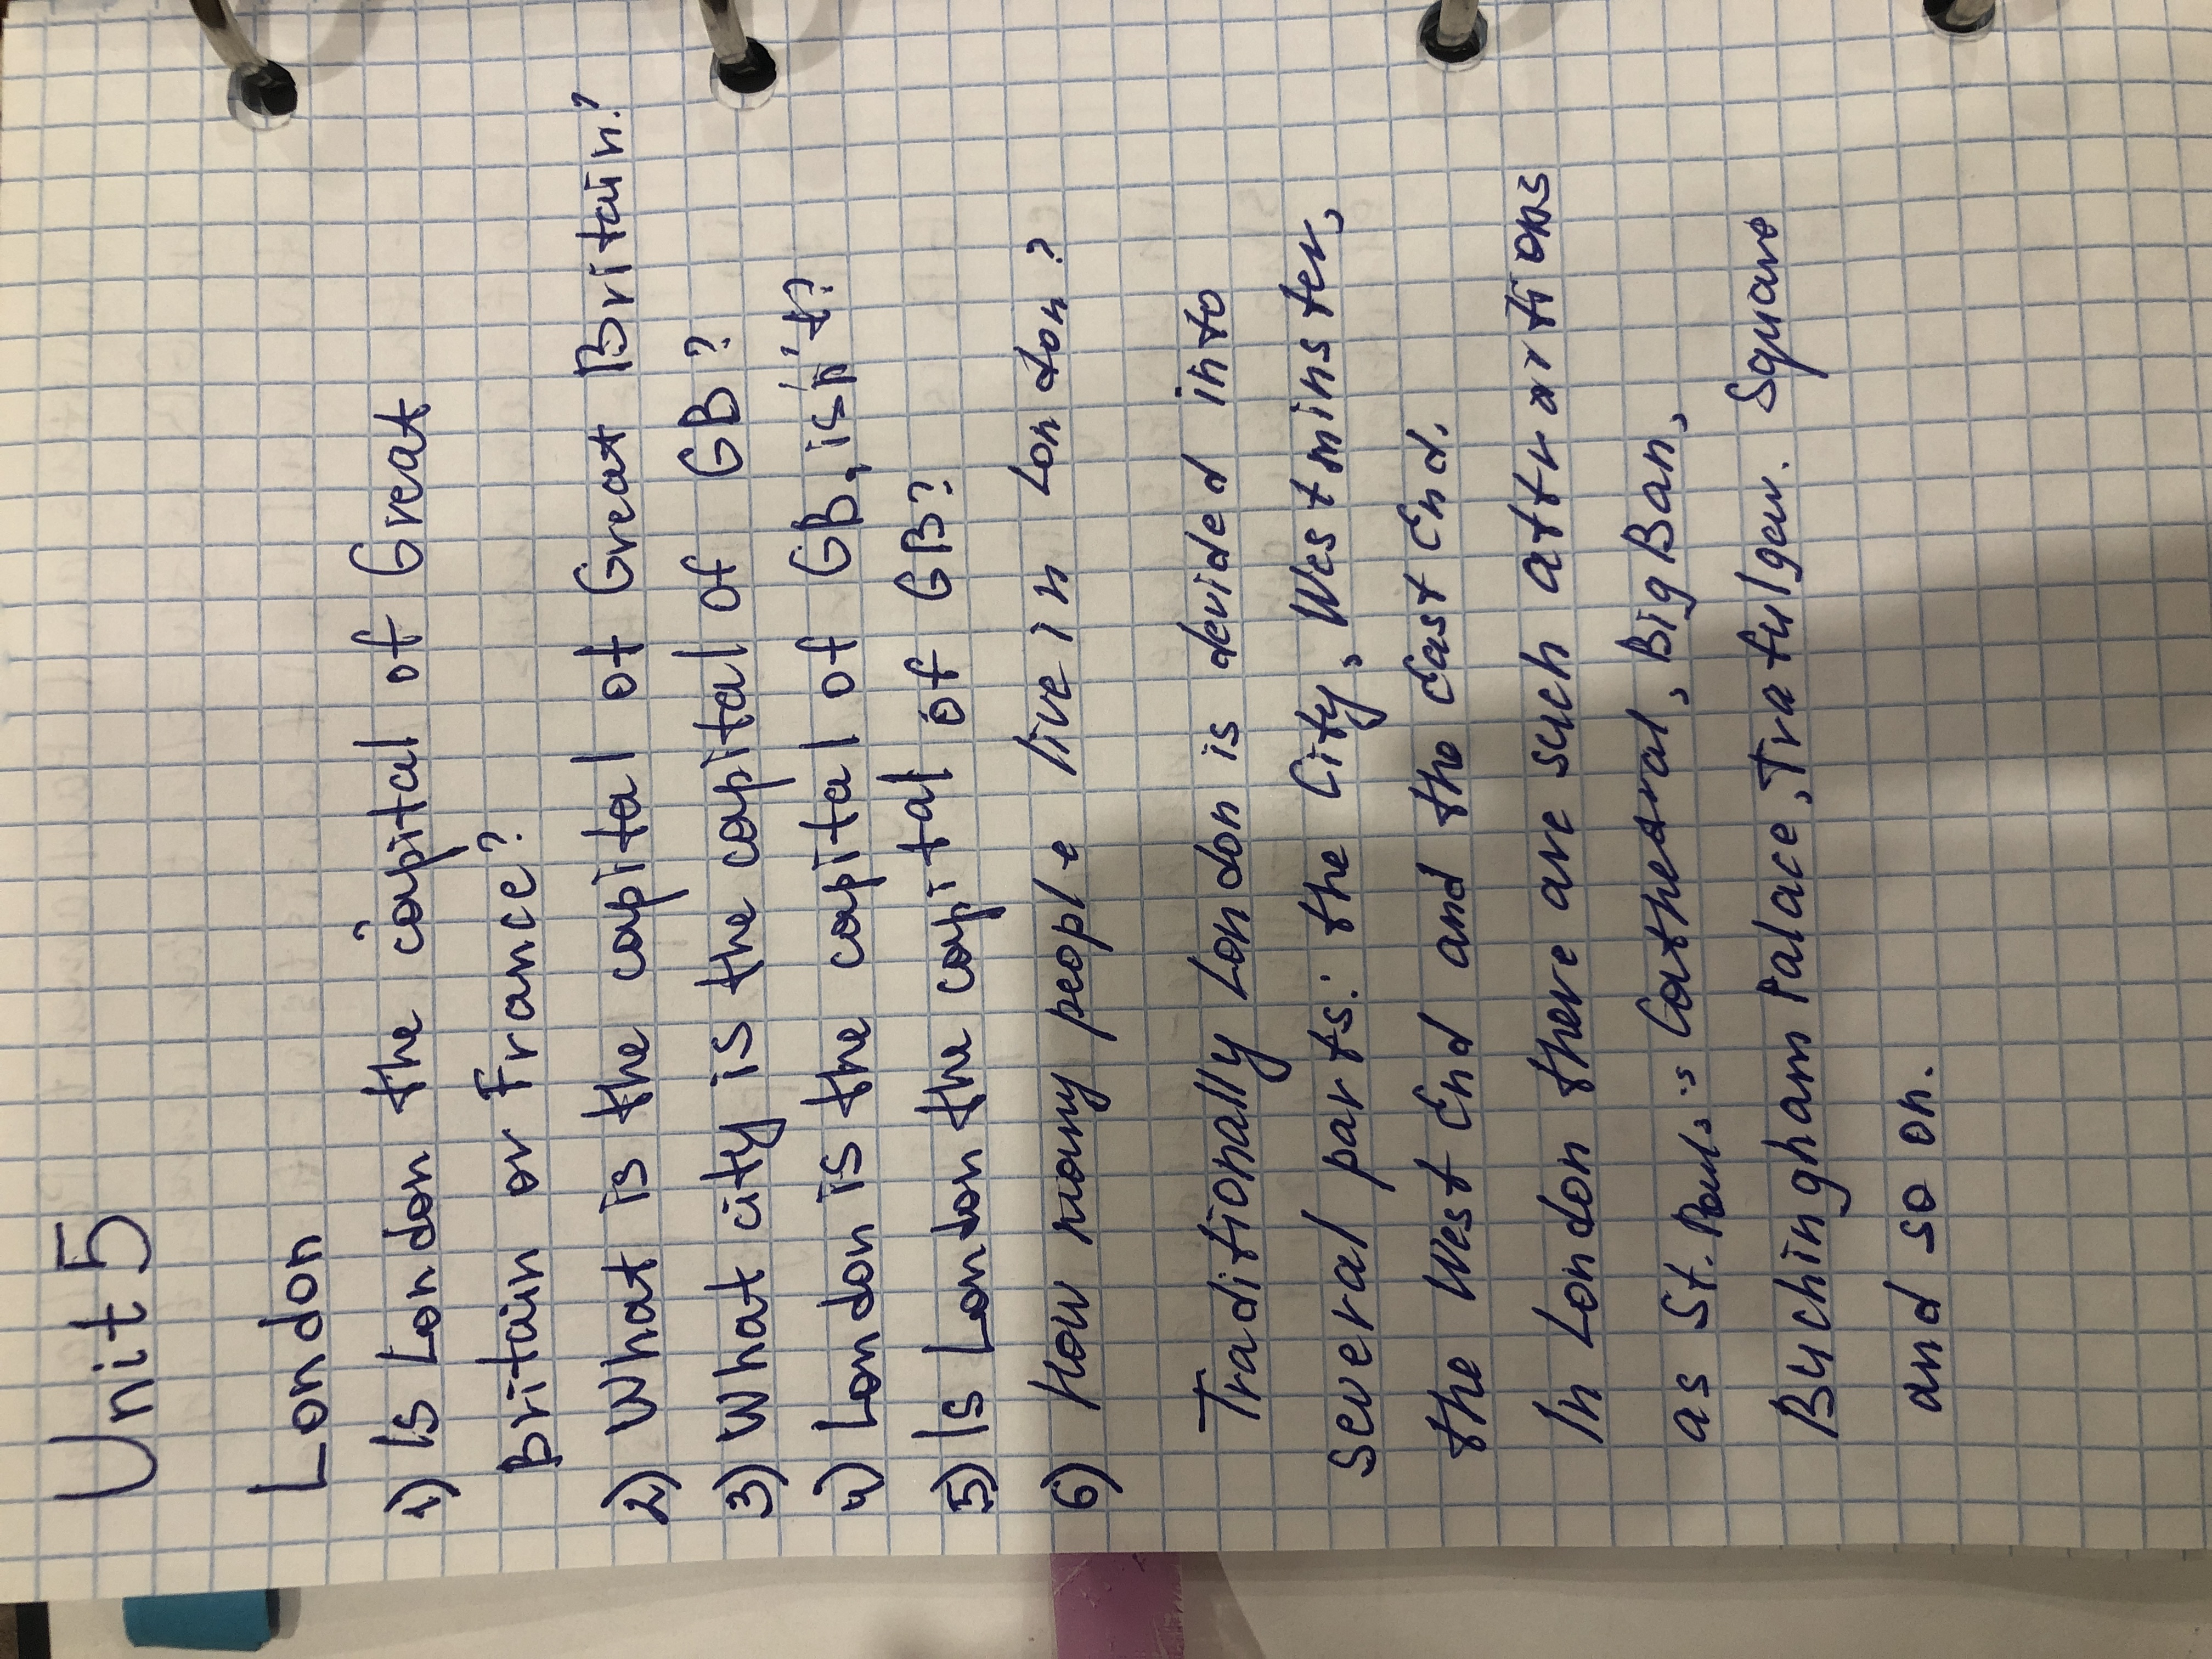 Unit 5
London
1) Is London the capital of Great
Britain or France?
2) What is the capital of Great Britain?
3) What city is the capital of GB?
4) London is the capital of GB, isn't?
5) Is London the capital of GB?
6) How many people live in London?
Traditionally London is devided into
several parts: the City, Westminster,
the West End and the East End.
In London there are such attrartions
as St. Paul's Cathedral, Big Ban,
Buchingham Palace, Trafulgar. Square
and so on.